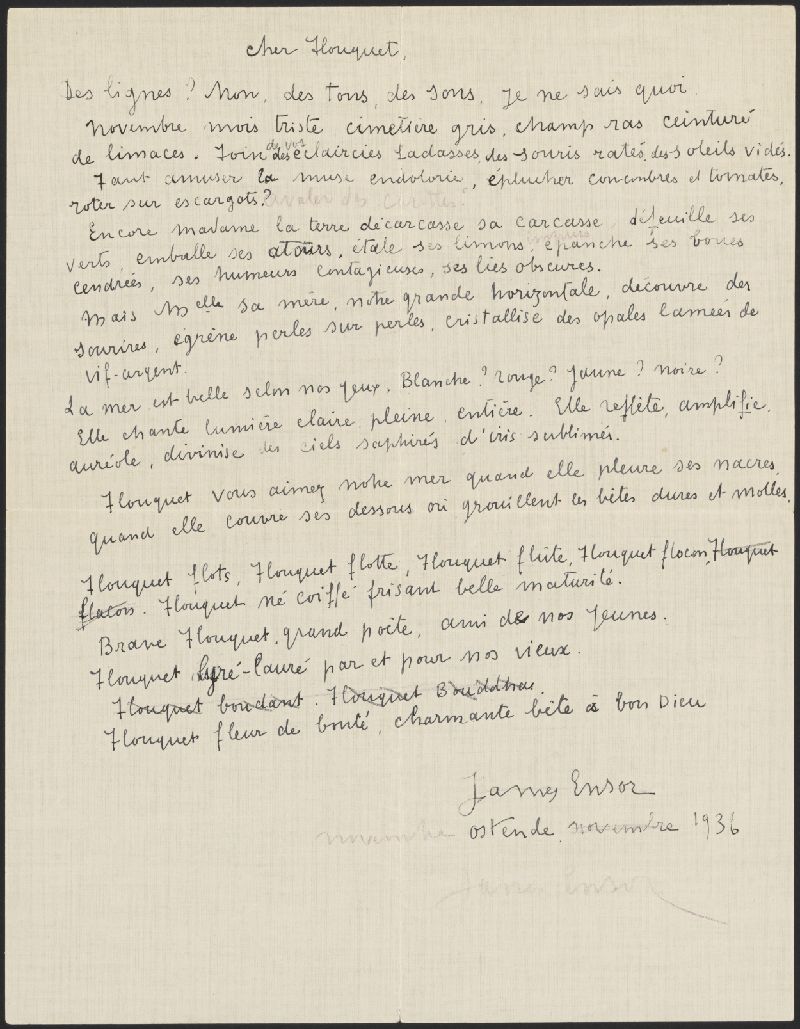 Cher Flouquet,
Des lignes ? Non, des tons, des sons, je ne sais quoi.
Novembre mois triste cimetière gris, champ ras ceinturé
de vos
de limaces. Foin des éclaircies fadasses, des souris ratés, des soleils vidés.
Faut amuser la muse endolorie, éplucher concombres et tomates,
roter sur escargots ? avaler des carottes.
Encore madame la terre décarcasse sa carcasse, défeuille ses
verts, emballe ses atours, étale ses limons, épanche ses boues
cendrées, ses humeurs contagieuses, ses lies obscures.
Mais Melle sa mère, notre grande horizontale, découvre des
sourires, égrène perles sur perles, cristallise des opales lamées de
vif-argent.
La mer est belle selon nos yeux. Blanche ? rouge ? jaune ? noire ?
Elle chante lumière claire, pleine, entière. Elle reflète, amplifie,
auréole, divinise des ciels saphirés d'iris sublimés.
Flouquet vous aimez notre mer quand elle pleure ses nacres,
quand elle couvre ses dessous où grouillent les bêtes dures et molles.
Flouquet flots, Flouquet flotte, Flouquet flûte, Flouquet flocon, Flouquet
flacon. Flouquet né coiffé frisant belle maturité.
Brave Flouquet, grand poète, ami de nos jeunes.
Flouquet lyré-lauré par et pour nos vieux.
Flouquet boudant. Flouquet Bouddha.
Flouquet fleur de bonté, charmante bête à bon Dieu
James Ensor
novembre Ostende, novembre 1936
James Ensor